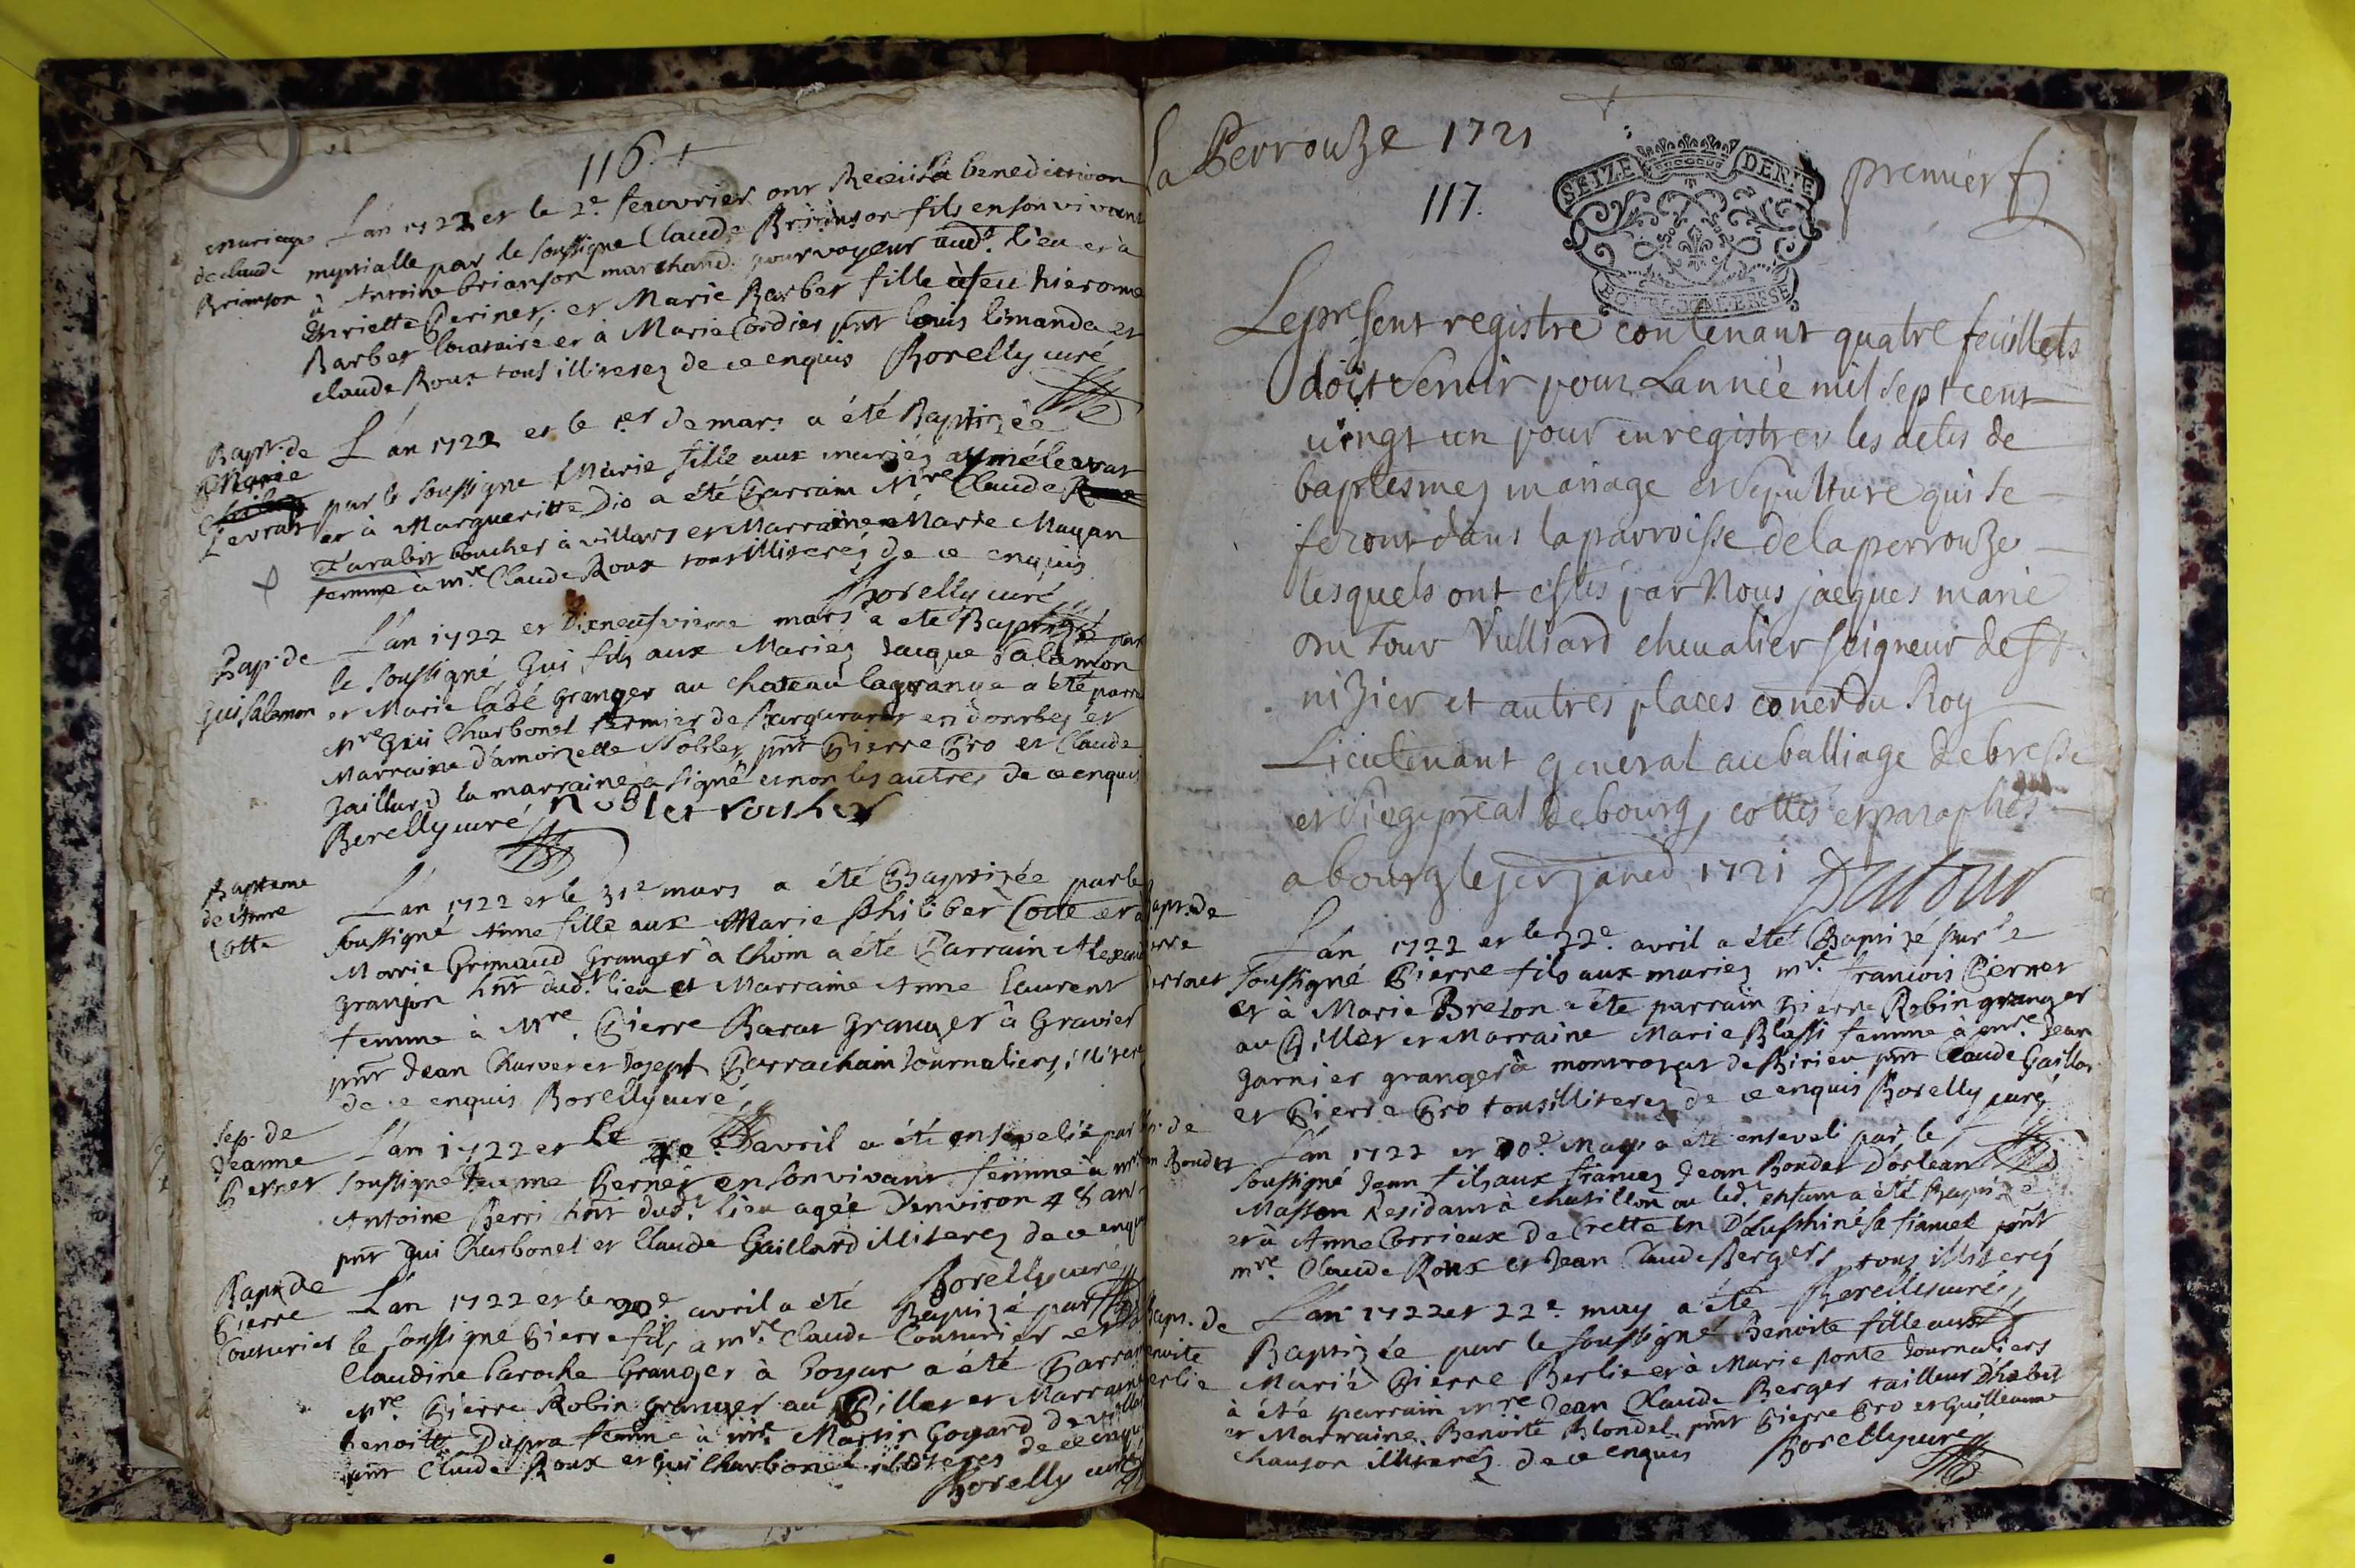 116.
mariage
de claude
Brianson
L'an 1722 et le 2e. feuvrier ont Receü la benediction
nuptialle par le soussigné Claude Brianson fils en son vivant
à Antoine brianson marchand pourvoyeur aud.t lieu et à
Enriette Perinet, et Marie Barbet fille à feu hierome
Barbet locataire et à Marie Cordier pnt louis limanda et
claude Roux tous illiterez de ce enquis Borelly curé
Bapt. de
Marie
Levrat
L'an 1722 et le 1er de mars a été Baptizée
par le soussigné Marie fille aux mariéz aymé levrat
et à Margueritte Dio a été Parrain Mre Claude
Farabit boucher à villars et Marraine Marie Mugan
femme à mre Claude Roux tous illiterés de ce enquis
Borelly curé
Bap. de
Gui Salamon
L'an 1722 et Dixneufvieme mars a été Baptizé par
le soussigné Gui fils aux Mariéz Jacque Salamon
et Marie labé granger au chateau lagrange a été parr
Mre Gui Charbonet fermier de en dombes et
Marraine d'amoizelle Noblet, pnt Pierre Pro et Claude
Jaillard la marraine a signé et non les autres de ce enquis
Borelly curé Noblet
Bapteme
de Anne
Cotte
L'an 1722 et le 31e mars a été Baptizée par le
soussigné Anne fille aux Marie philiber Cotte et à
Marie Grimaud Granger à lhom a été Parrain Alexand
granjon hnt dud.t lieu et Marraine Anne laurent
femme à Mre. Pierre Barat Granger à Gravier
pnt Jean Charvet et Joseph Perrachain Journaliers, illiter
de ce enquis Borelly curé
Sep. de
Jeanne
Pernet
L'an 1722 et le avril a été ensevelie par
soussigné Jeanne Pernet en son vivant femme à mre
Antoine Berri hnt dud.t lieu agée d'environ 48 ans
pnt Gui Charbonet et Claude Gaillard illiterez de ce enqu
Borelly curé
Bapt de
Pierre
Couturier
L'an 1722 et le 20e avril a été Baptizé par
le soussigné Pierre fils à mre. Claude Couturier et à
Claudine laroche Granger à boyar a été Parrai
Mre. Pierre Robin granger au Pillet et Marraine
benoitte Dupra femme à mre. Martin Goyard de villa
pnt Claude Roux et Gui Charbonet illiteres de ce enqu
Borelly curé
la Perrouze 1721
117.
SEIZE DENIE
premier f
Le present registre contenant quatre feüillets
doit servir pour Lannée mil sept cent
vingt un pour enregistrer les actes de
baptesmes mariage et sepulture qui se
feront dans la parroisse de la perrouze
lesquels ont estés par Nous jacques marie
du Tour Vulliard chevalier seigneur de St.
nizier et autres places coner du Roy
Lieutenant general au balliage de bresse
et siege preal de bourg, cottés et paraphés
a bourg le janer 1721 Dutour
Bapt. de
L'an 1722 et le 22e. avril a été Baptizé par le
soussigné Pierre fils aux mariez mre. francois Pernet
et à Marie Breton a été parrain Pierre Robin granger
au Pillet et Marraine Marie Blassi femme à mre. Jean
garnier granger à montrozat de Birieu pnt Claude Gaillar
et Pierre Pro tous illiterez de ce enquis Borelly curé
L'an 1722 et 20e. May a été enseveli par le
soussigné Jean fils aux fiancez Jean Bondet D'orlean
Masson Residant à chatillon ou led.t enfant a été Baptizé
et à Anne Corrieux de Crette en Dauphiné sa fiancée pnt
mre. Claude Roux et Jean Claude Berger, tous illiterés
Borelly curé
Bapt. de
L'an 1722 et 22e may a été
Baptizée par le soussigné Benoite fille aux
Marié Pierre Berlie et à Marie Ponte Journaliers
à été parrain mre Jean Claude Berger tailleur d'habit
et Marraine. Benoite Blondel pnt Pierre Pro et Guilleaume
Chanson illiterés de ce enquis Borelly curé